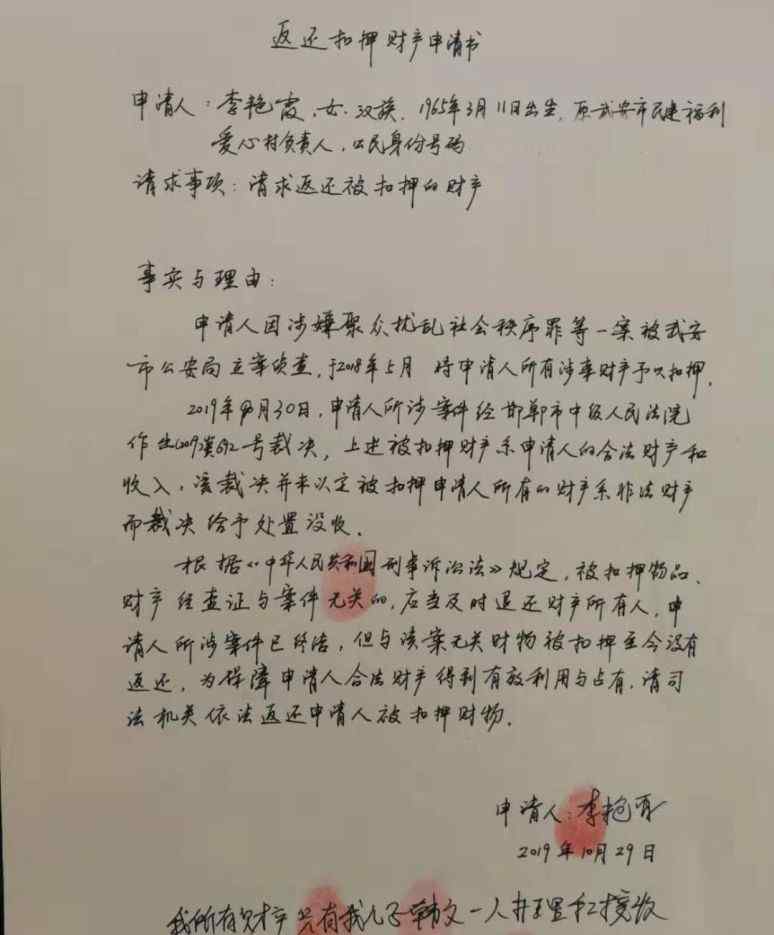 返还扣押财产申请书
申请人：李艳霞，女，汉族，1965年3月11日出生，原武安市民建福利
爱心村负责人，公民身份号码
请求事项：请求返还被扣押的财产
事实与理由：
申请人因涉嫌聚众扰乱社会秩序罪等一案被武安
市公安局立案侦查，于2018年5月 将申请人所有涉案财产予以扣押。
2019年 月30日，申请人所涉案件经邯郸市中级人民法院
作出 号裁决，上述被扣押财产系申请人的合法财产和
收入，该裁决并未认定被扣押申请人所有的财产系非法财产
而裁决给予处置没收。
根据《中华人民共和国刑事诉讼法》规定，被扣押物品、
财产经查证与案件无关的，应当及时退还财产所有人，申
请人所涉案件已终结，但与该案无关财物被扣押至今没有
返还，为保障申请人合法财产得到有效利用与占有，请司
法机关依法返还申请人被扣押财物。
申请人：李艳霞
2019年10月29日
我所有财产只有我儿子韩文一人 和接收